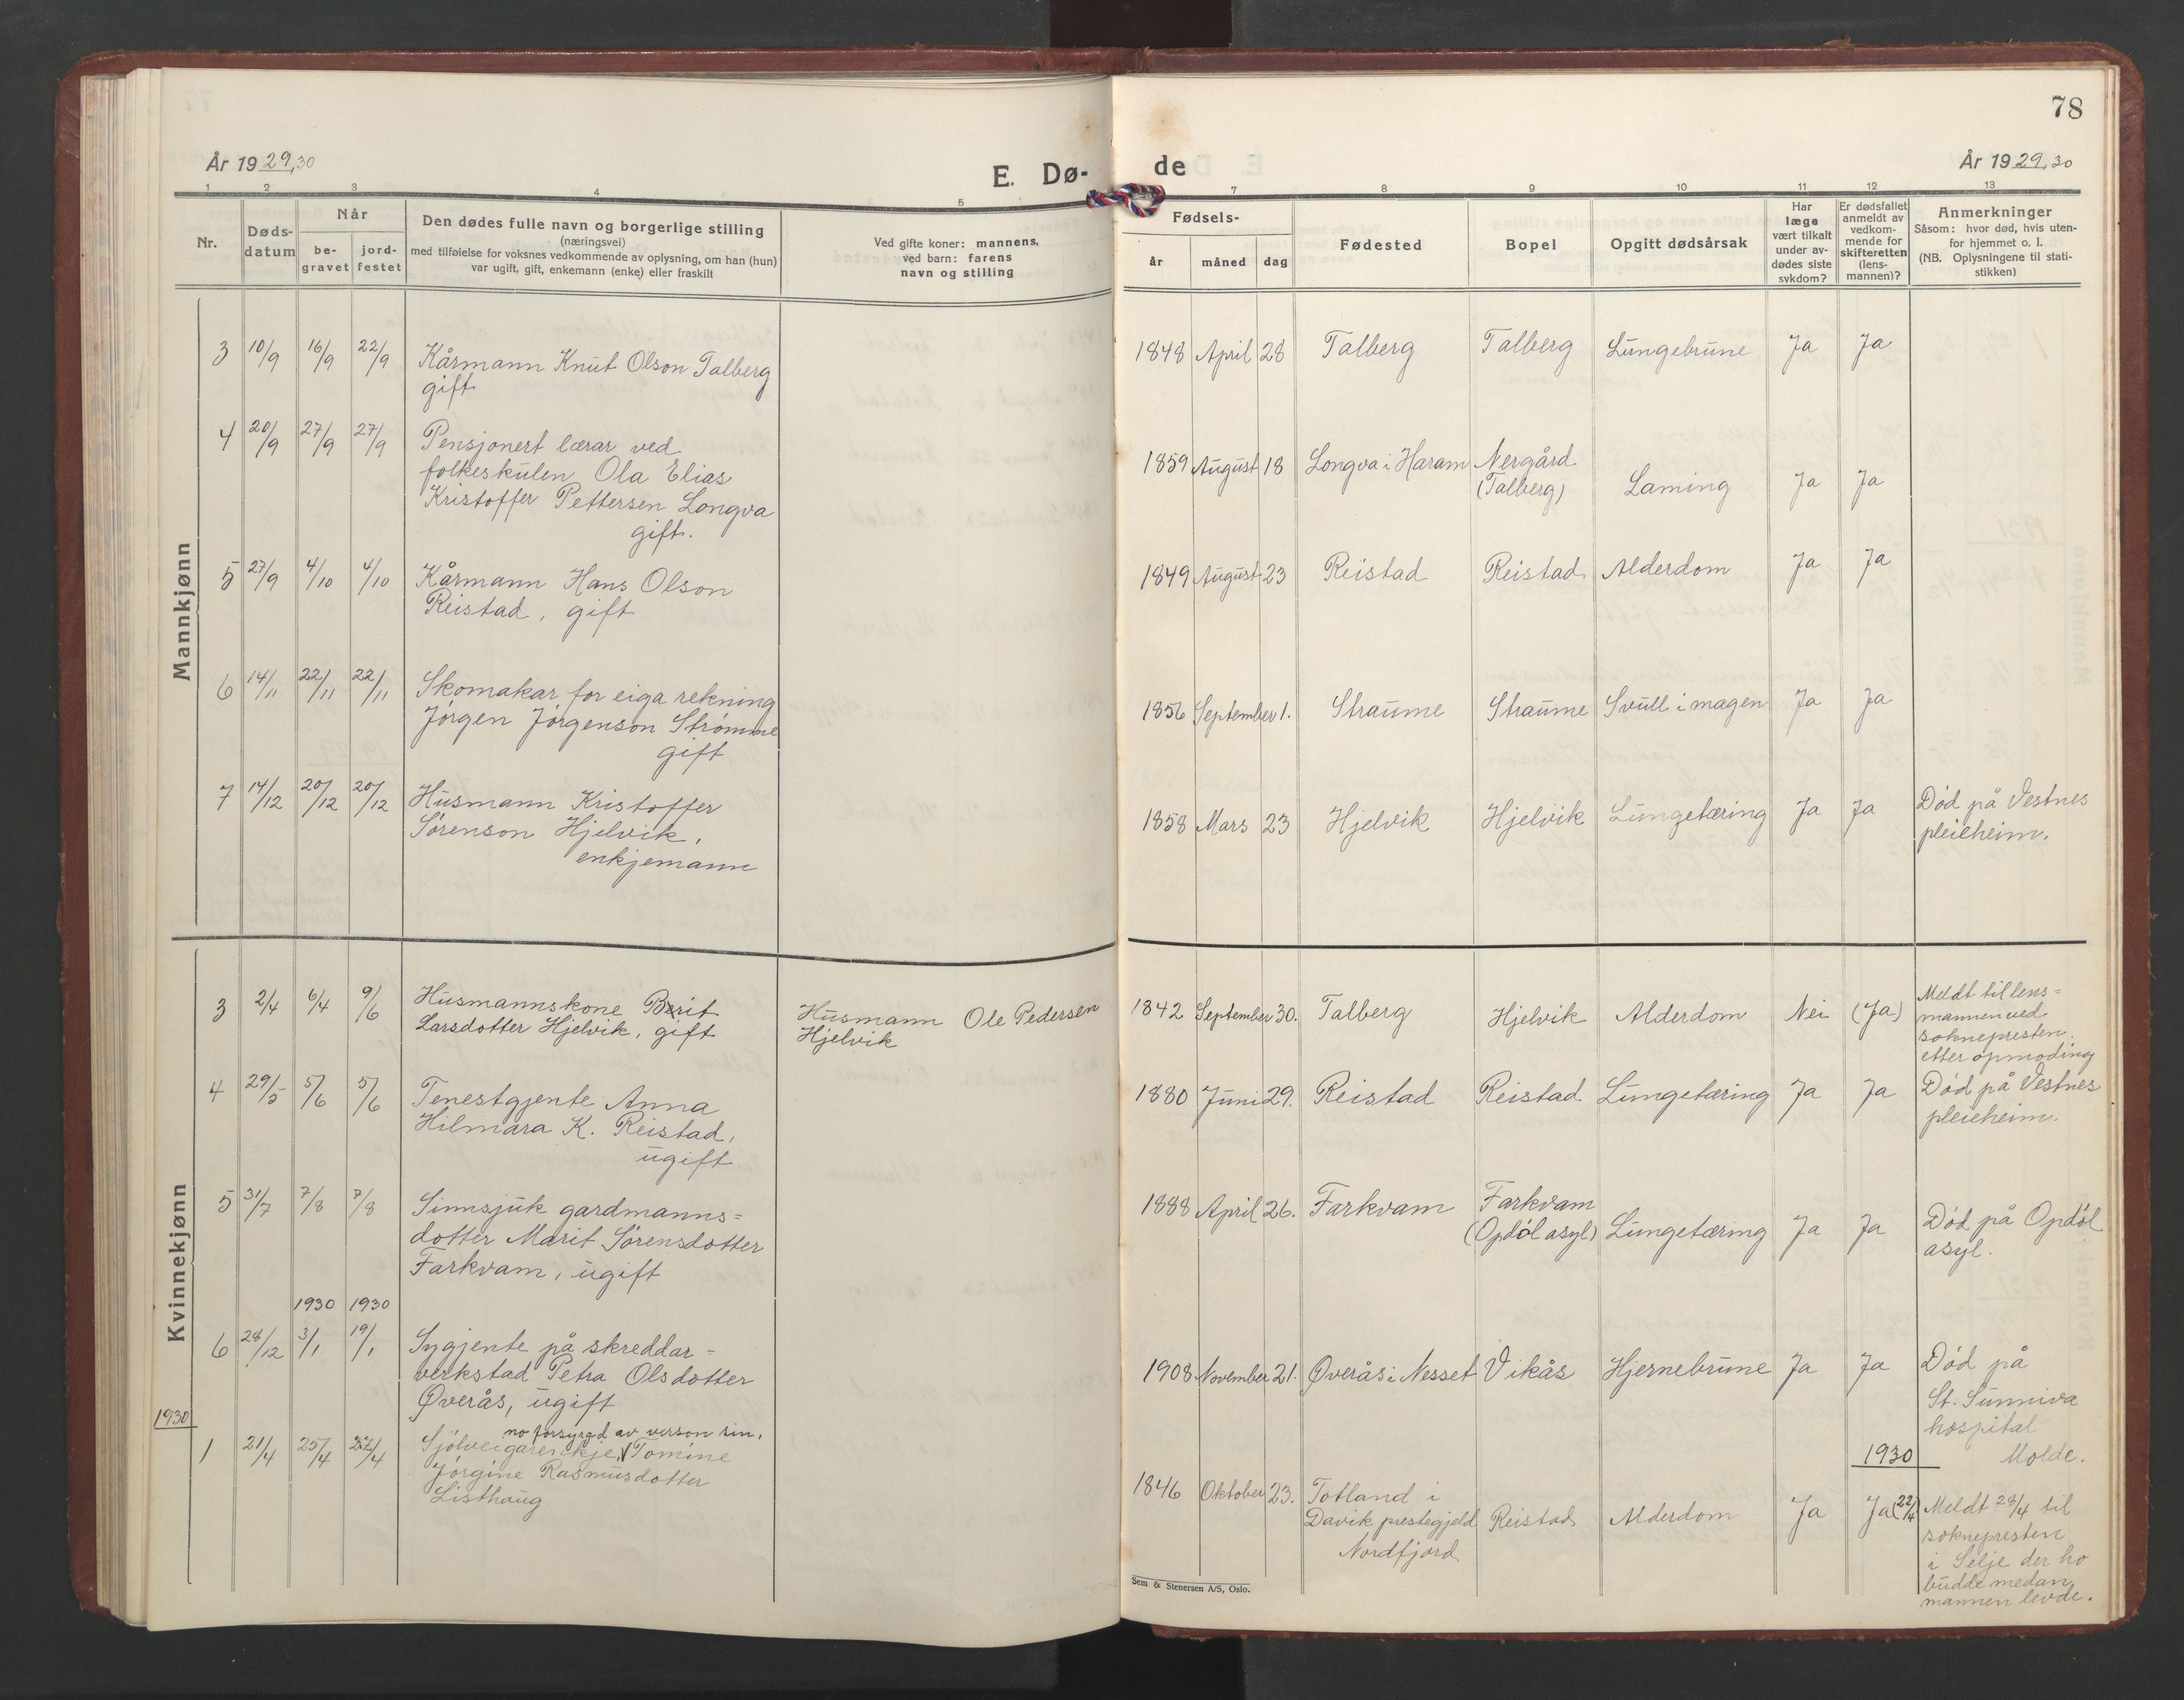 78
År 1929,30
E. Dø-
de
År 1929,30
1 2 3 4 5 7 8 9 10 11 12 13
Nr.
Døds-
datum
Når
be-
gravet
jord-
festet
Den dødes fulle navn og borgerlige stilling
(næringsvei)
med tilføielse for voksnes vedkommende av oplysning, om han (hun)
var ugift, gift, enkemann (enke) eller fraskilt
Ved gifte koner: mannens,
ved barn: farens
navn og stilling
Fødsels-
år måned dag
Fødested
Bopel
Opgitt dødsårsak
Har
læge
vært tilkalt
under av-
dødes siste
sykdom?
Er dødsfallet
anmeldt av
vedkom-
mende for
skifteretten
(lens-
mannen)?
Anmerkninger
Såsom: hvor død, hvis uten-
for hjemmet o. l.
(NB. Oplysningene til stati-
stikken)
Mannkjønn
3 10/9 16/9 22/9 Kårmann Knut Olson Talberg
gift
1848 April 28 Talberg Talberg Lungebrune Ja Ja
4 20/9 27/9 27/9 Pensjonert lærar ved
folkeskulen Ola Elias
Kristoffer Pettersen Longva
gift.
1859 August 18 Longva i Haram Nergård
(Talberg) Laming Ja Ja
5 27/9 4/10 4/10 Kårmann Hans Olson
Reistad, gift
1849 August 23 Reistad Reistad Alderdom Ja Ja
6 14/11 22/11 22/11 Skomakar for eiga rekning
Jørgen Jørgenson Strømme
gift
1856 September 1. Straume Straume Svull i magen Ja Ja
7 14/12 20/12 20/12 Husmann Kristoffer
Sørenson Hjelvik,
enkjemann
1858 Mars 23 Hjelvik Hjelvik Lungetæring Ja Ja Død på Vestnes
pleieheim.
Kvinnekjønn
3 2/4 6/4 9/6 Husmannskone Berit
Larsdotter Hjelvik, gift
Husmann Ole Pedersen
Hjelvik
1842 September 30. Talberg Hjelvik Alderdom Nei (Ja) Meldt til lens=
mannen ved
soknepresten
etter opmoding
4 29/5 5/6 5/6 Tenestgjente Anna
Hilmara K. Reistad,
ugift
1880 Juni 29. Reistad Reistad Lungetæring Ja Ja Død på Vestnes
pleieheim.
5 31/7 7/8 7/8 Sinnsjuk gardmanns=
dotter Marit Sørensdotter
Farkvam, ugift
1888 April 26. Farkvam Farkvam
(Opdøl asyl) Lungetæring Ja Ja Død på Opdøl
asyl.
1930 1930
6 28/12 3/1 19/1 Sygjente på skreddar=
verkstad Petra Olsdotter
Øverås, ugift
1908 November 21. Øverås i Nesset Vikås Hjernebrune Ja Ja Død på
St. Sunniva
hospital
Molde.
1930
1930
no forsyrgd av verson sin.
1 21/4 25/4 27/4 Sjølveigarenkje, Tomine
Jørgine Rasmusdotter
Listhaug
1846 Oktober 23. Totland i
Davik prestegjeld
Nordfjord
Reistad Alderdom Ja Ja (22/4) Meldt 28/4 til
soknepresten
i Selje der ho
budde medan
mannen levde.
Sem & Stenersen A/S, Oslo.